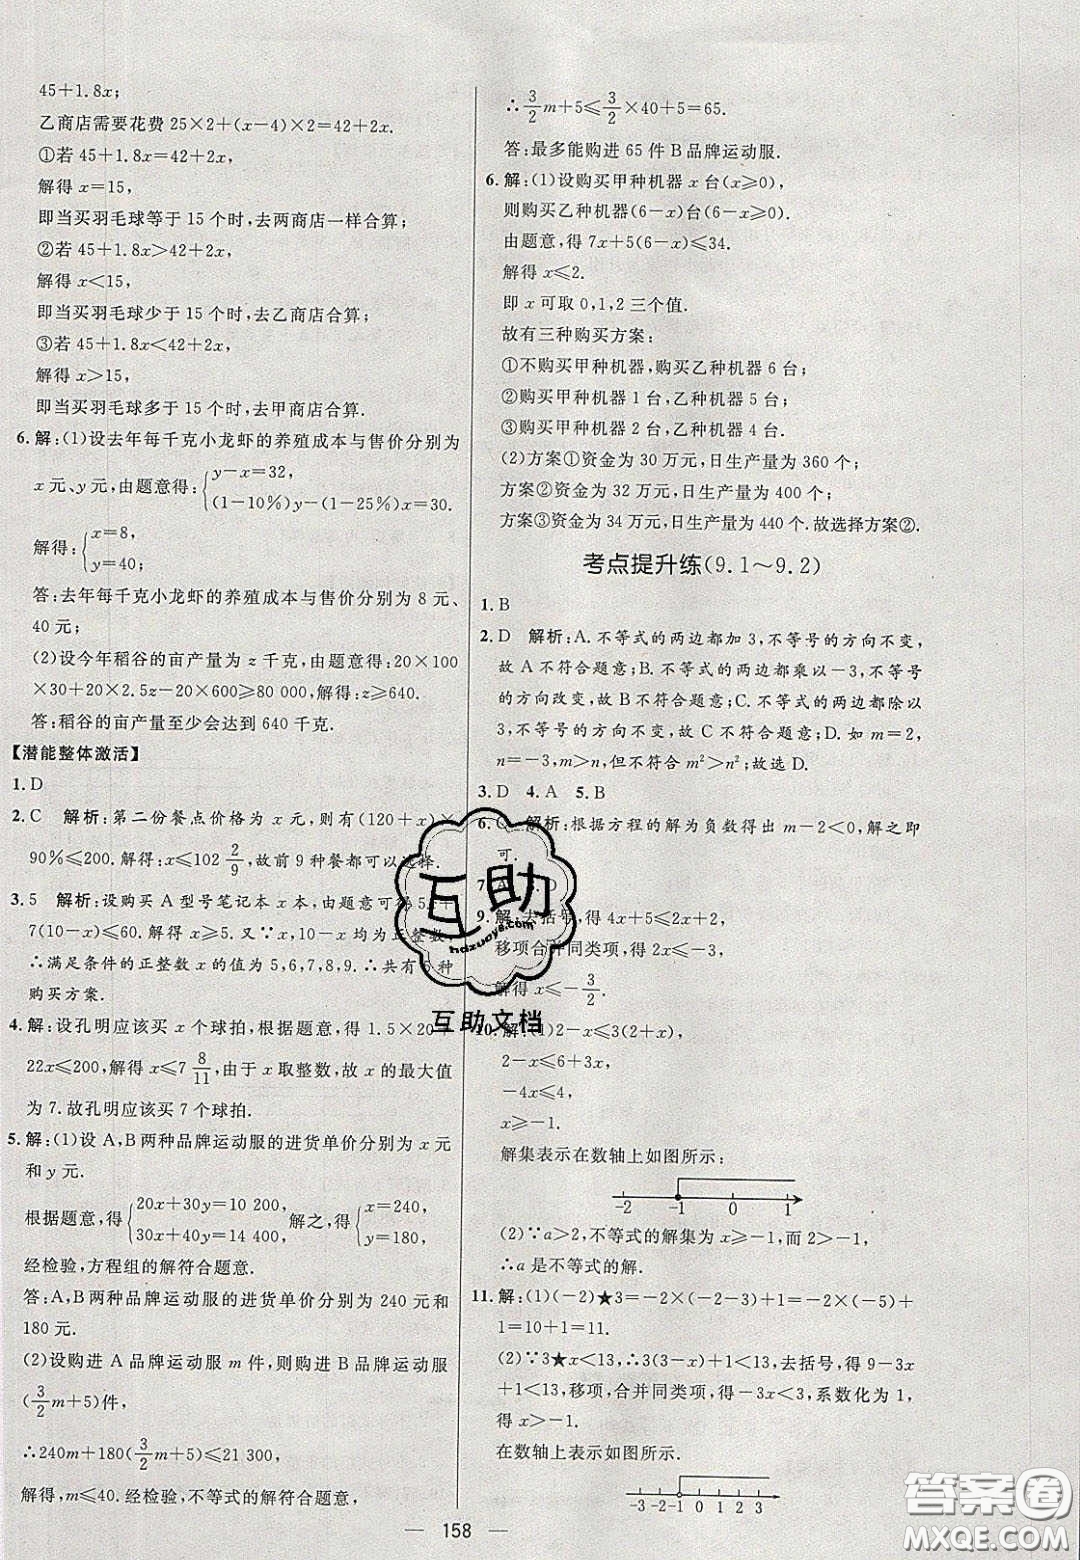 45+1.8x;
乙商店需要花费 25×2+(x-4)×2=42+2x.
①若 45+1.8x=42+2x,
解得 x=15,
即当买羽毛球等于 15 个时,去两商店一样合算;
②若 45+1.8x>42+2x,
解得 x<15,
即当买羽毛球少于 15 个时,去乙商店合算;
③若 45+1.8x<42+2x,
解得 x>15,
即当买羽毛球多于 15 个时,去甲商店合算.
6. 解:(1)设去年每千克小龙虾的养殖成本与售价分别为
x 元、y 元,由题意得:{y-x=32,
(1-10%)y-(1-10%)x=30.
解得:{x=8,
y=40;
答:去年每千克小龙虾的养殖成本与售价分别为 8 元、
40 元;
(2)设今年稻谷的亩产量为 z 千克,由题意得:20×100
×30+20×2.5z-20×600≥80 000,解得:z≥640.
答:稻谷的亩产量至少会达到 640 千克.
【潜能整体激活】
1. D
2. C 解析:第二份餐点价格为 x 元,则有(120+x)×
90%≤200. 解得:x≤102 2/9,故前 9 种餐都可以选择.
3. 5 解析:设购买 A 型号笔记本 x 本,由题意可得 5x+
7(10-x)≤60. 解得 x≥5. 又∵x,10-x 均为正整数,
∴满足条件的正整数 x 的值为 5,6,7,8,9. ∴共有 5 种
购买方案.
4. 解:设孔明应该买 x 个球拍,根据题意,得 1.5×20+
22x≤200,解得 x≤7 8/11,由于 x 取整数,故 x 的最大值
为 7. 故孔明应该买 7 个球拍.
5. 解:(1)设 A,B两种品牌运动服的进货单价分别为 x 元
和 y 元.
根据题意,得{20x+30y=10 200,
30x+40y=14 400,
解之,得{x=240,
y=180,
经检验,方程组的解符合题意.
答:A,B两种品牌运动服的进货单价分别为 240 元和
180 元.
(2)设购进 A 品牌运动服 m 件,则购进 B 品牌运动服
(3/2m+5)件,
∴240m+180(3/2m+5)≤21 300,
解得,m≤40. 经检验,不等式的解符合题意,
∴3/2m+5≤3/2×40+5=65.
答:最多能购进 65 件 B 品牌运动服.
6. 解:(1)设购买甲种机器 x 台(x≥0),
则购买乙种机器(6-x)台(6-x≥0).
由题意,得 7x+5(6-x)≤34.
解得 x≤2.
即 x 可取 0,1,2 三个值.
故有三种购买方案:
①不购买甲种机器,购买乙种机器 6 台;
②购买甲种机器 1 台,乙种机器 5 台;
③购买甲种机器 2 台,乙种机器 4 台.
(2)方案①资金为 30 万元,日生产量为 360 个;
方案②资金为 32 万元,日生产量为 400 个;
方案③资金为 34 万元,日生产量为 440 个. 故选择方案②.
考点提升练(9.1～9.2)
1. B
2. D 解析:A. 不等式的两边都加 3,不等号的方向不变,
故 A 不符合题意;B. 不等式的两边都乘以-3,不等号
的方向改变,故 B 不符合题意;C. 不等式的两边都除以
3,不等号的方向不变,故 C 不符合题意;D. 如 m=2,
n=-3,m>n,但不符合 m²>n²;故选 D.
3. D 4. A 5. B
6. C 解析:根据方程的解为负数得出 m-2<0,解之即
可.
7. A 8. D
9. 解:去括号,得 4x+5≤2x+2,
移项合并同类项,得 2x≤-3,
解得 x≤-3/2.
10. 解:(1)2-x≤3(2+x),
2-x≤6+3x,
-4x≤4,
x≥-1.
解集表示在数轴上如图所示:
-2 -1 0 1
(2)∵a>2,不等式的解集为 x≥-1,而 2>-1,
∴a 是不等式的解.
11. 解:(1)(-2)★3=-2×(-2-3)+1=-2×(-5)+
1=10+1=11.
(2)∵3★x<13,∴3(3-x)+1<13,去括号,得 9-3x
+1<13,移项,合并同类项,得-3x<3,系数化为 1,
得 x>-1.
在数轴上表示如图所示.
-3 -2 -1 0 1 2 3
— 158 —
互助
hdzuoye8.com
互助文档
答案圈
MXQE.COM